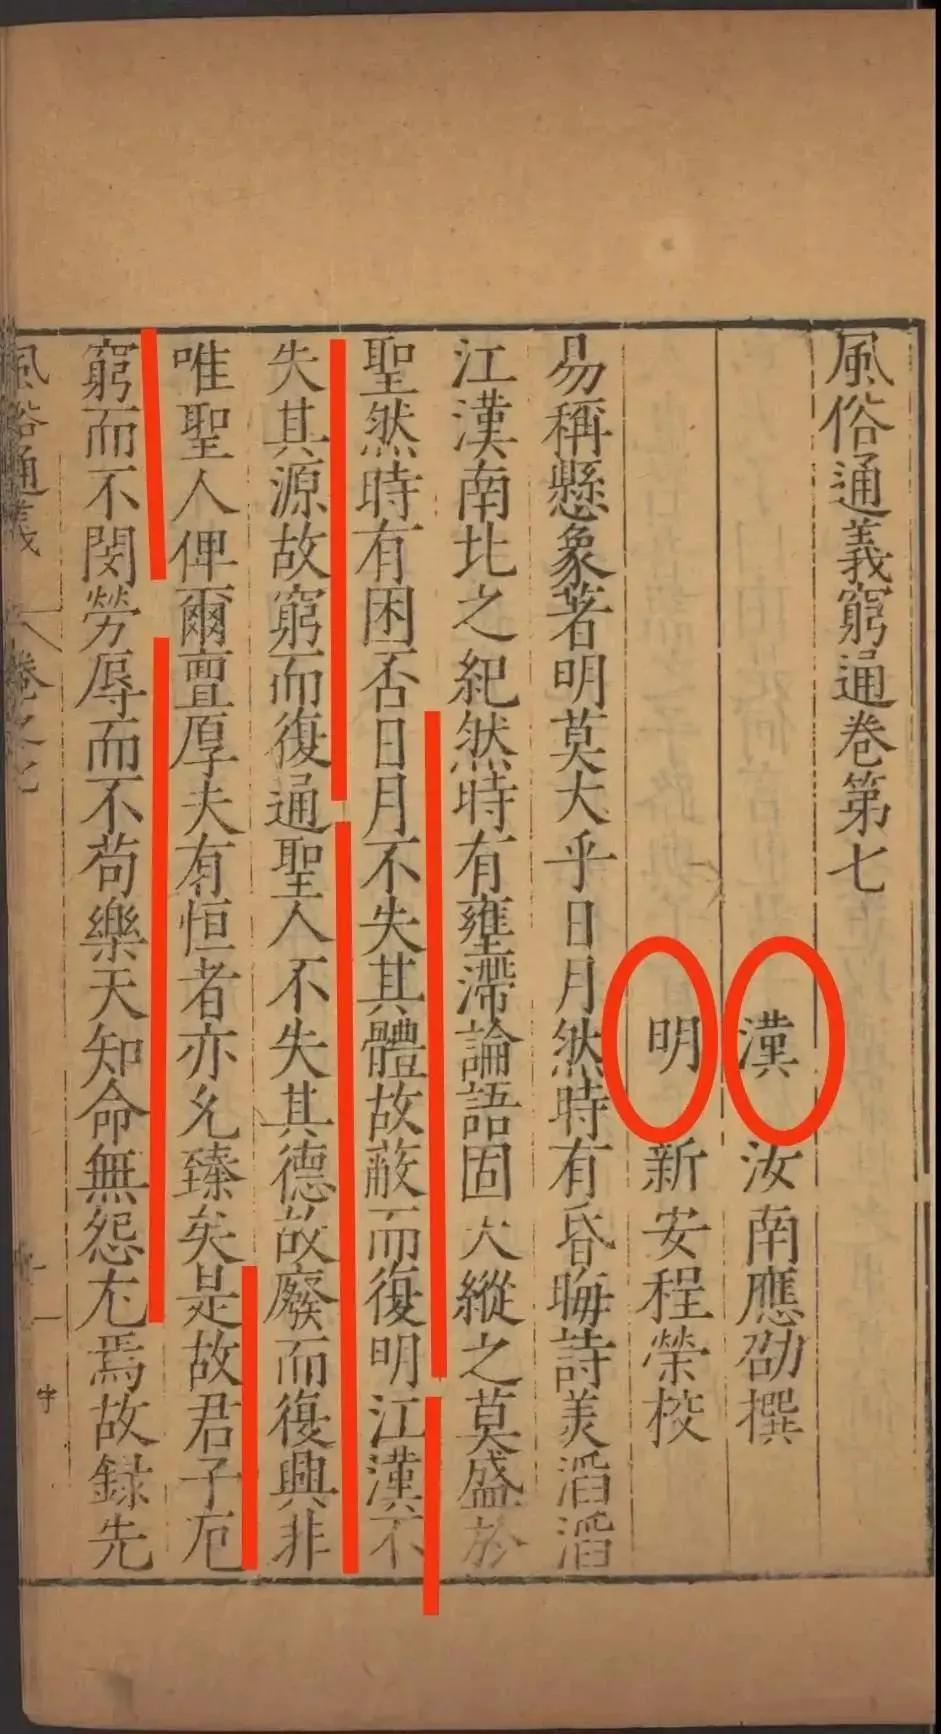 風俗通義窮通卷第七
漢汝南應劭撰
明新安程榮校
易稱懸象著明莫大乎日月然時有昏晦詩美滔滔
江漢南北之紀然時有壅滯論語固大縱之莫盛於
聖然時有困否日月不失其體故蔽而復明江漢不
失其源故窮而復通聖人不失其德故廢而復興非
唯聖人俾爾亶厚夫有恒者亦允臻矣是故君子厄
窮而不閔勞辱而不苟樂天知命無怨尤焉故録先
風俗通義 卷之七 一